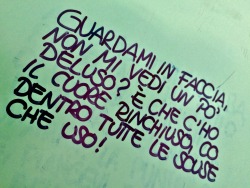 GUARDAMI IN FACCIA,
NON MI VEDI UN PO'
DELUSO? È CHE C'HO
IL CUORE RINCHIUSO, CO
DENTRO TUTTE LE SCUSE
CHE USO!